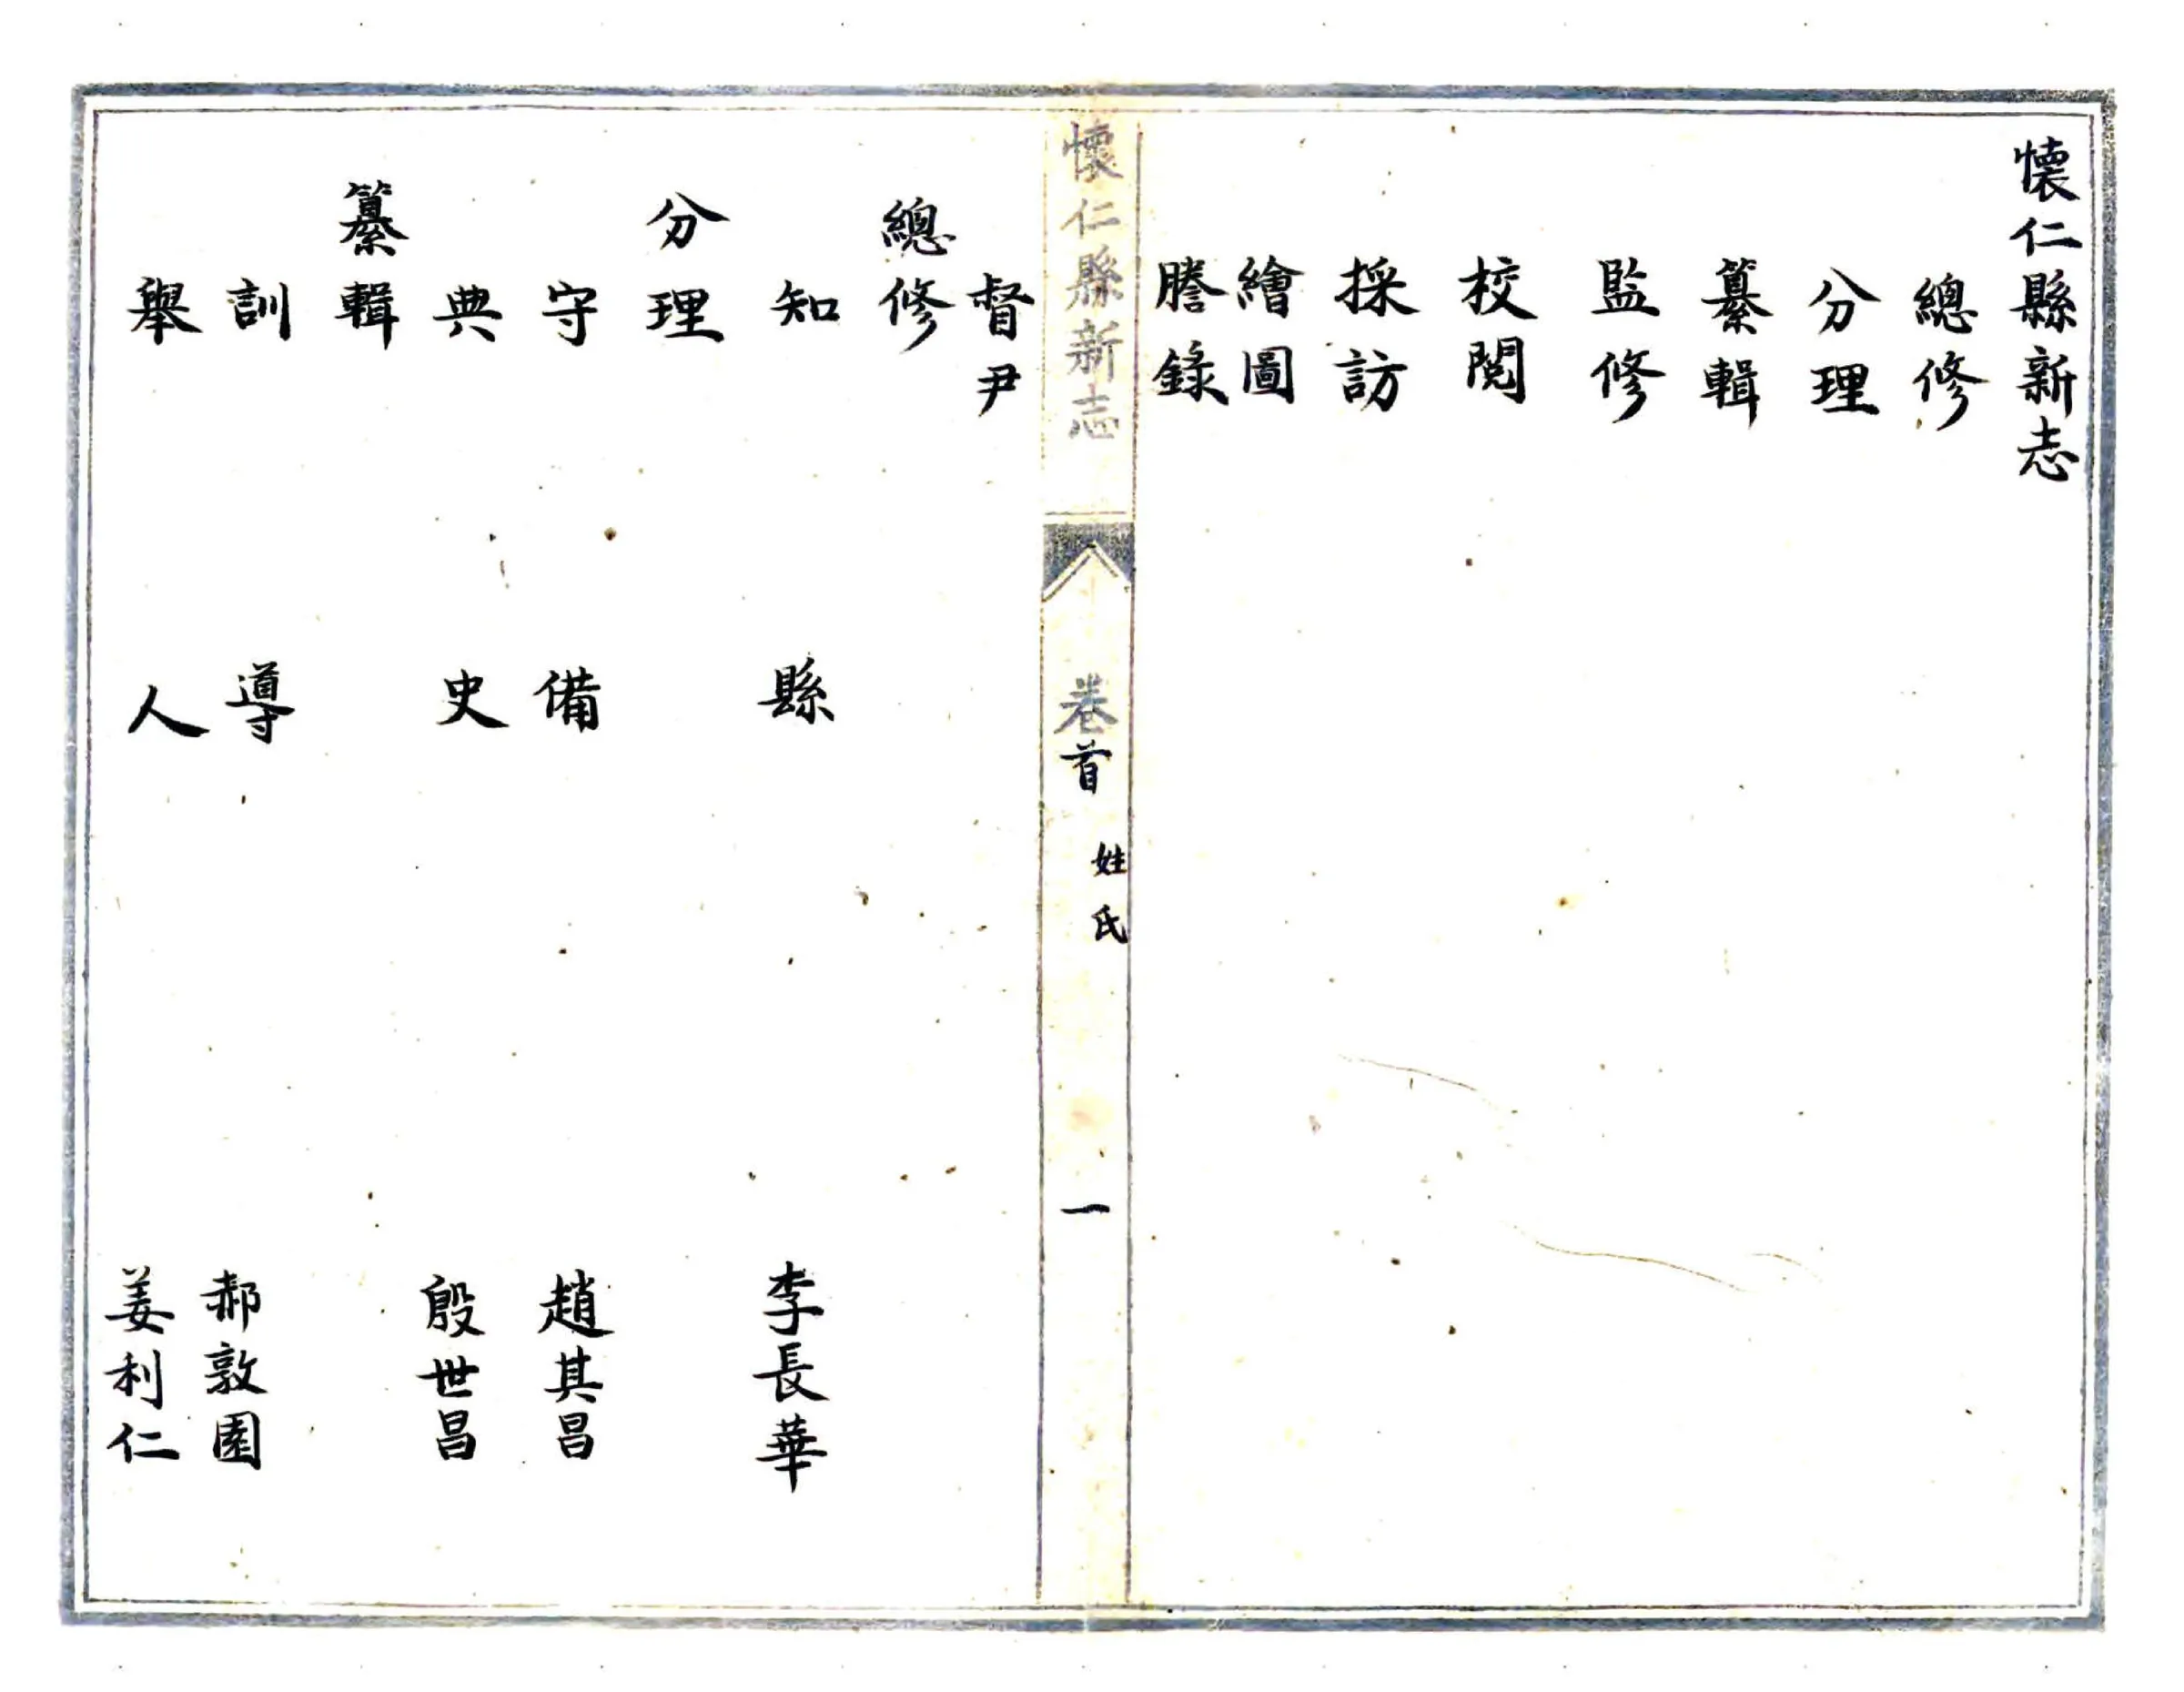 懷仁縣新志
總修
分理
纂輯
監修
校閱
採訪
繪圖
謄錄
懷仁縣新志 卷首 姓氏 一
督尹
總修
知 縣 李長華
分理
守 備 趙其昌
典 史 殷世昌
纂輯
訓 導 郝敦園
舉 人 姜利仁